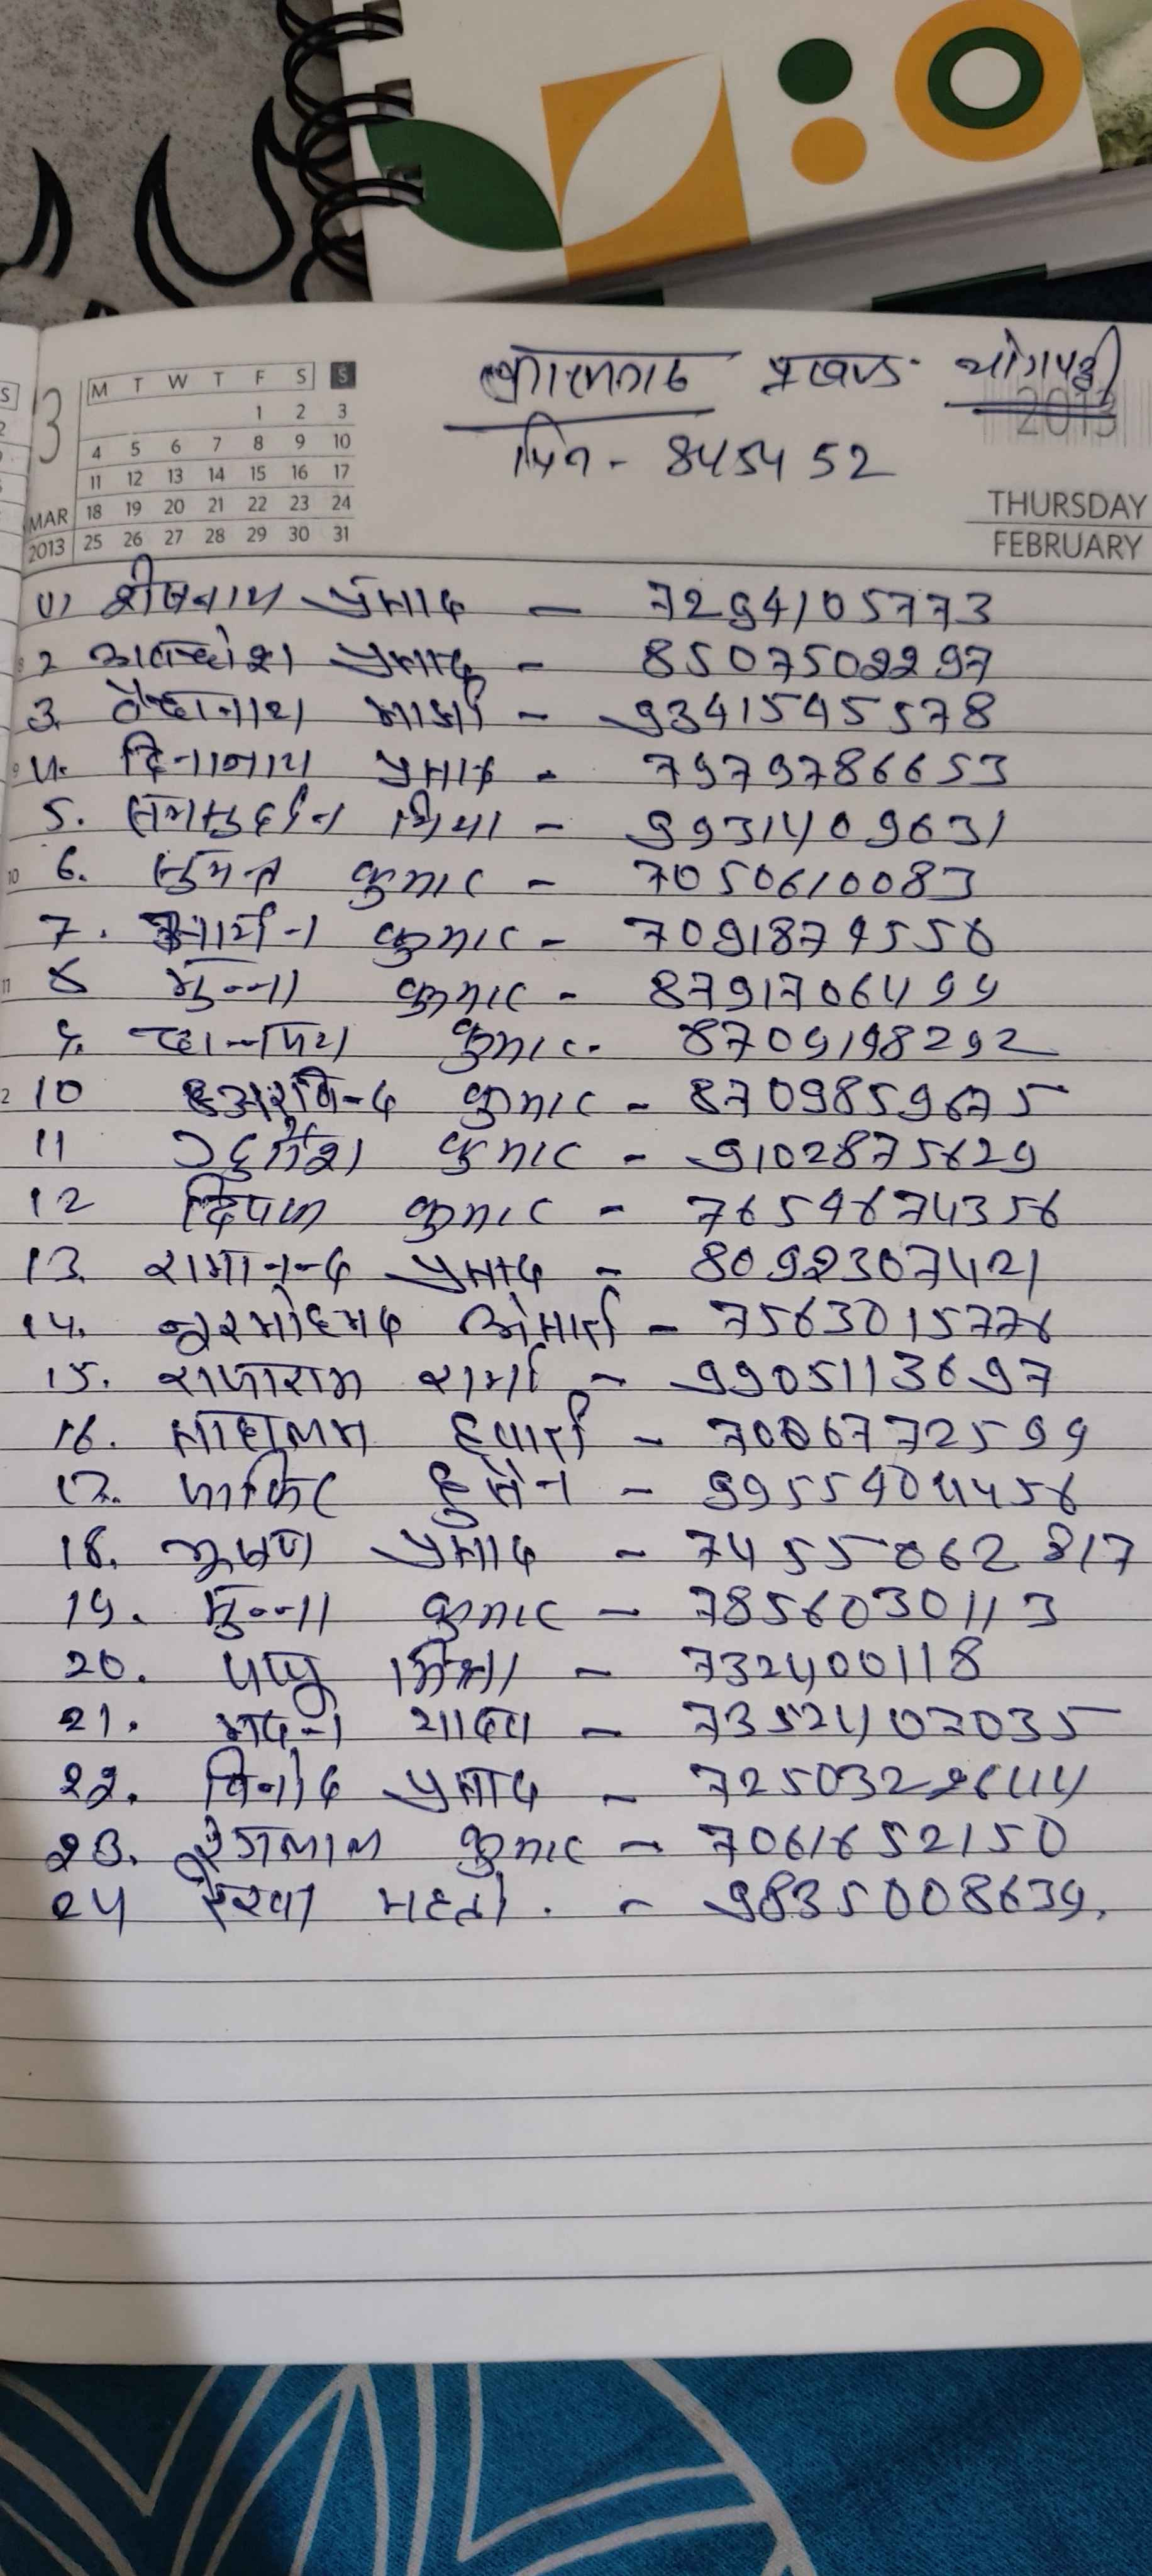 प्रखण्ड- योगापट्टी
पिन - 845452
M T W T F S S
1 2 3
4 5 6 7 8 9 10
11 12 13 14 15 16 17
MAR 18 19 20 21 22 23 24
2013 25 26 27 28 29 30 31
2013
THURSDAY
FEBRUARY
(1) शेषनाथ प्रसाद - 7294105773
2 अवधेश प्रसाद - 8507502297
3. वैद्यनाथ माझी - 9341545578
4. दिनानाथ प्रसाद - 7979786653
5. मिया - 9931409631
6. सुमन्त कुमार - 7050610083
7. कुमार - 7091879558
8 मुन्ना कुमार - 8791706499
9. कुमार - 8709198292
10 अरविन्द कुमार - 8709859675
11 कुमार - 9102875629
12 दिपक कुमार - 7654674356
13. रामानन्द प्रसाद - 8092307421
14. नूरमोहमद अंसारी - 7563015776
15. राजाराम शर्मा - 9905113697
16. हवारी - 7006772599
17. जाकिर हुसैन - 9955404456
18. भूषण प्रसाद - 7455062817
19. मुन्ना कुमार - 7856030113
20. पप्पु मिश्रा - 732400118
21. मदन यादव - 7352407035
22. विनोद प्रसाद - 7250322644
23. कुमार - 7061652150
24 रेखा महतो. - 9835008639.